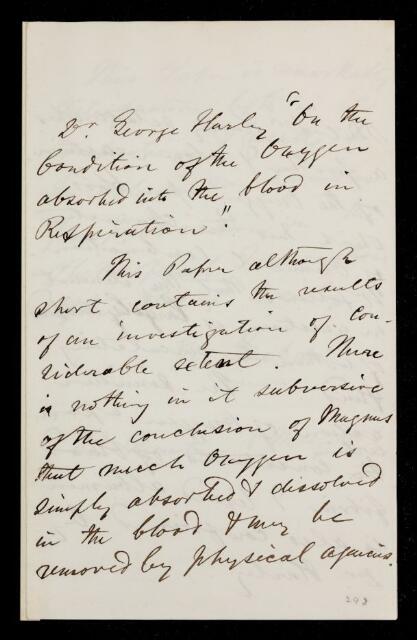 Dr George Harley "On the
Condition of the Oxygen
absorbed into the blood in
Respiration".
This Paper although
short contains the results
of an investigation of con-
siderable extent. There
is nothing in it subversive
of the conclusion of Magnus
that much Oxygen is
simply absorbed & dissolved
in the blood & may be
removed by physical agencies.
298